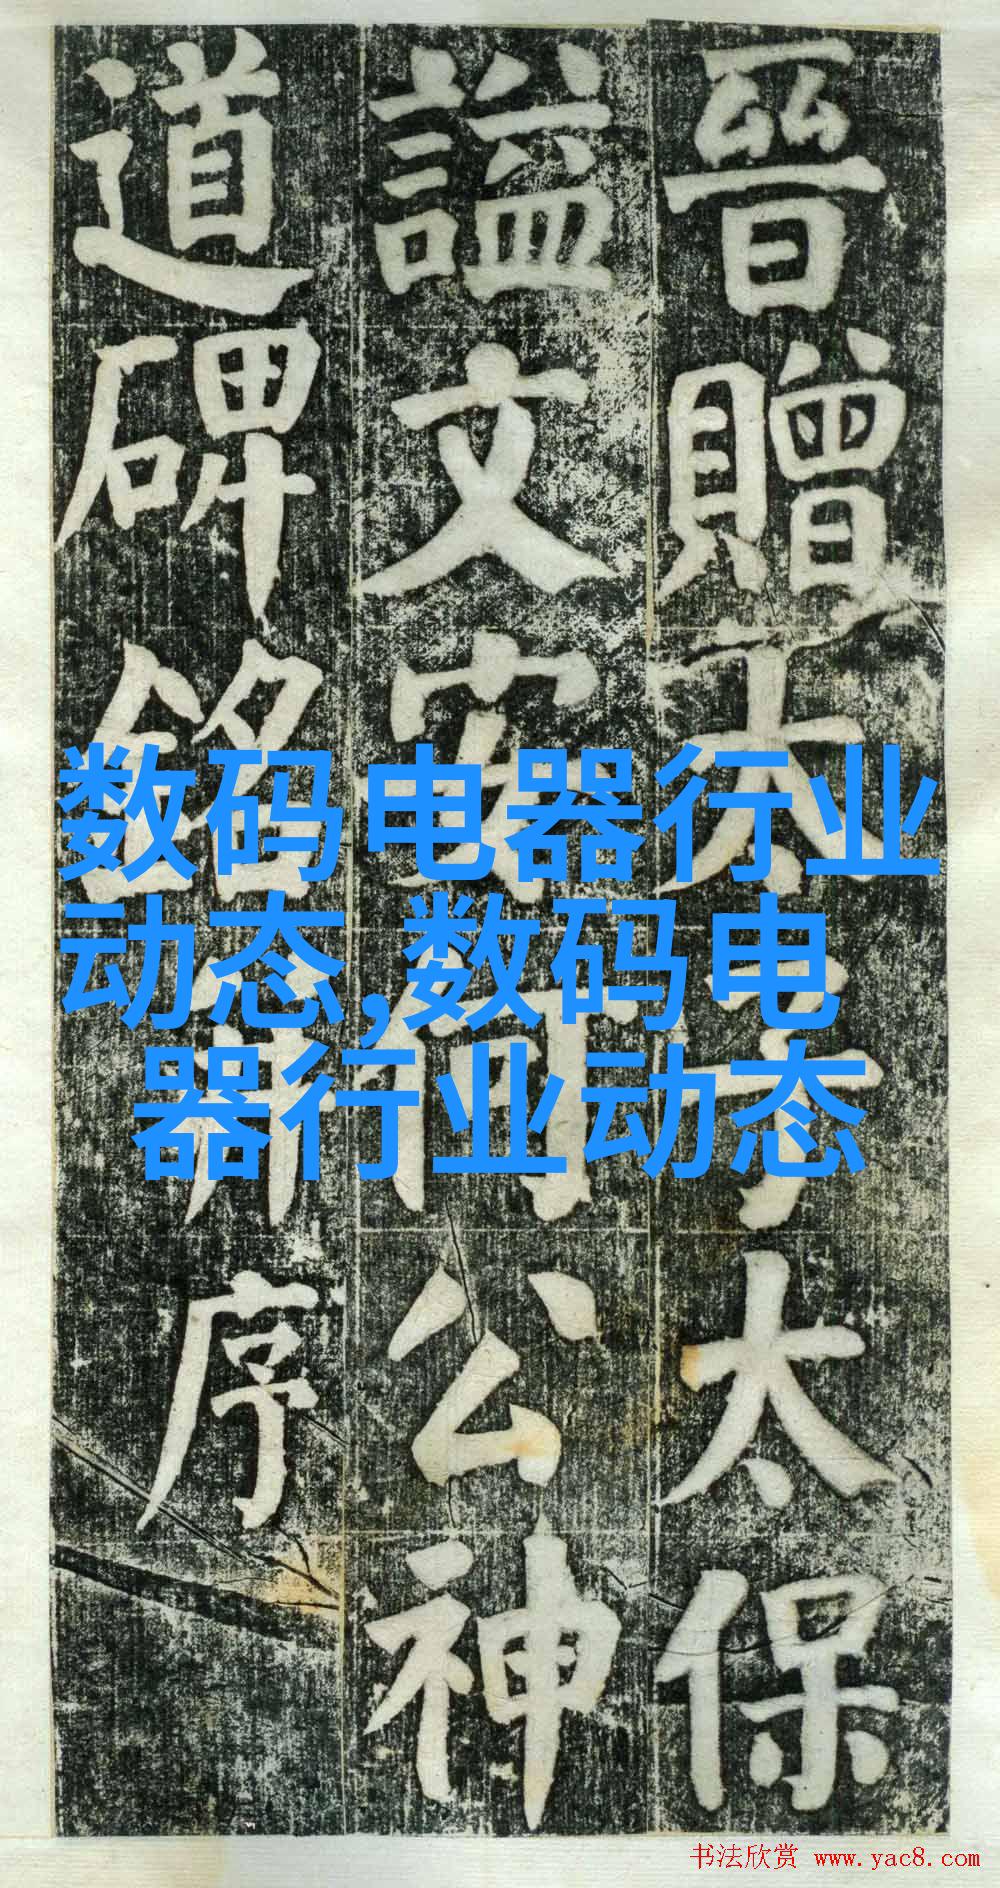 晉贈太子太保
謚文安何公神
道碑銘并序
数码电器行业
动态,数码电
器行业动态
书法欣赏 www.yac8.com